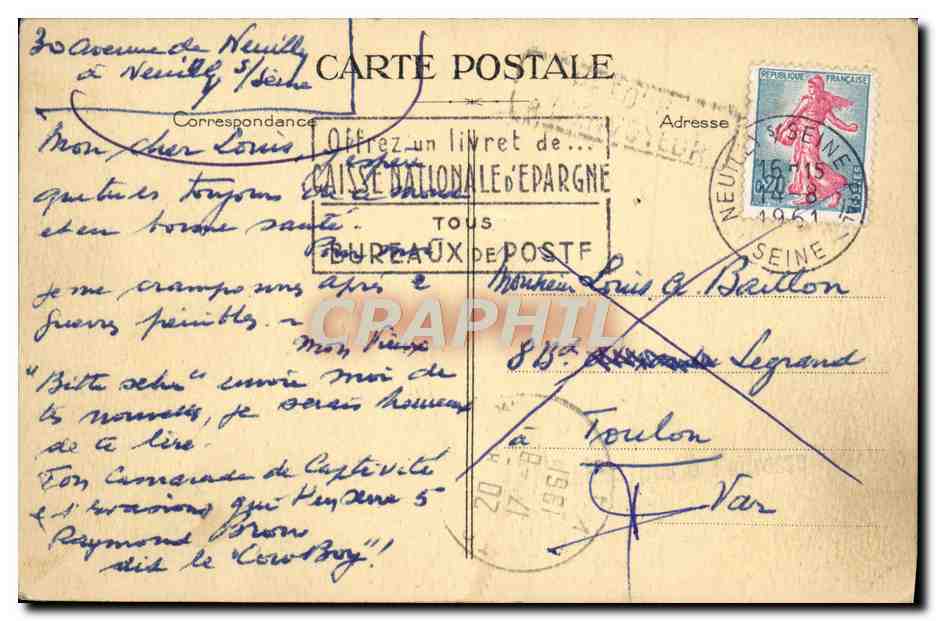 30 avenue de Neuilly
à Neuilly s/Seine
CARTE POSTALE
Correspondance
Adresse
RETOUR
REPUBLIQUE FRANÇAISE
0,20
POSTES
NEUILLY S/ SEINE PAL
16H15
14-8
1961
SEINE
Offrez un livret de...
CAISSE NATIONALE D'EPARGNE
TOUS
BUREAUX DE POSTE
Mon cher Louis, j'espère
que tu es toujours
et en bonne santé.
je me cramponne après 2
guerres pénibles.
Mon Vieux
"Bitte sehr" envoie moi de
tes nouvelles, je serais heureux
de te lire.
Ton Camarade de Captivité
et d'évasions qui t'en serre 5
Raymond
dit le "Cow Boy"!
Monsieur Louis G Baillon
8 Bd Legrand
à Toulon
Var
20 H
17-8
1961
CRAPHIL